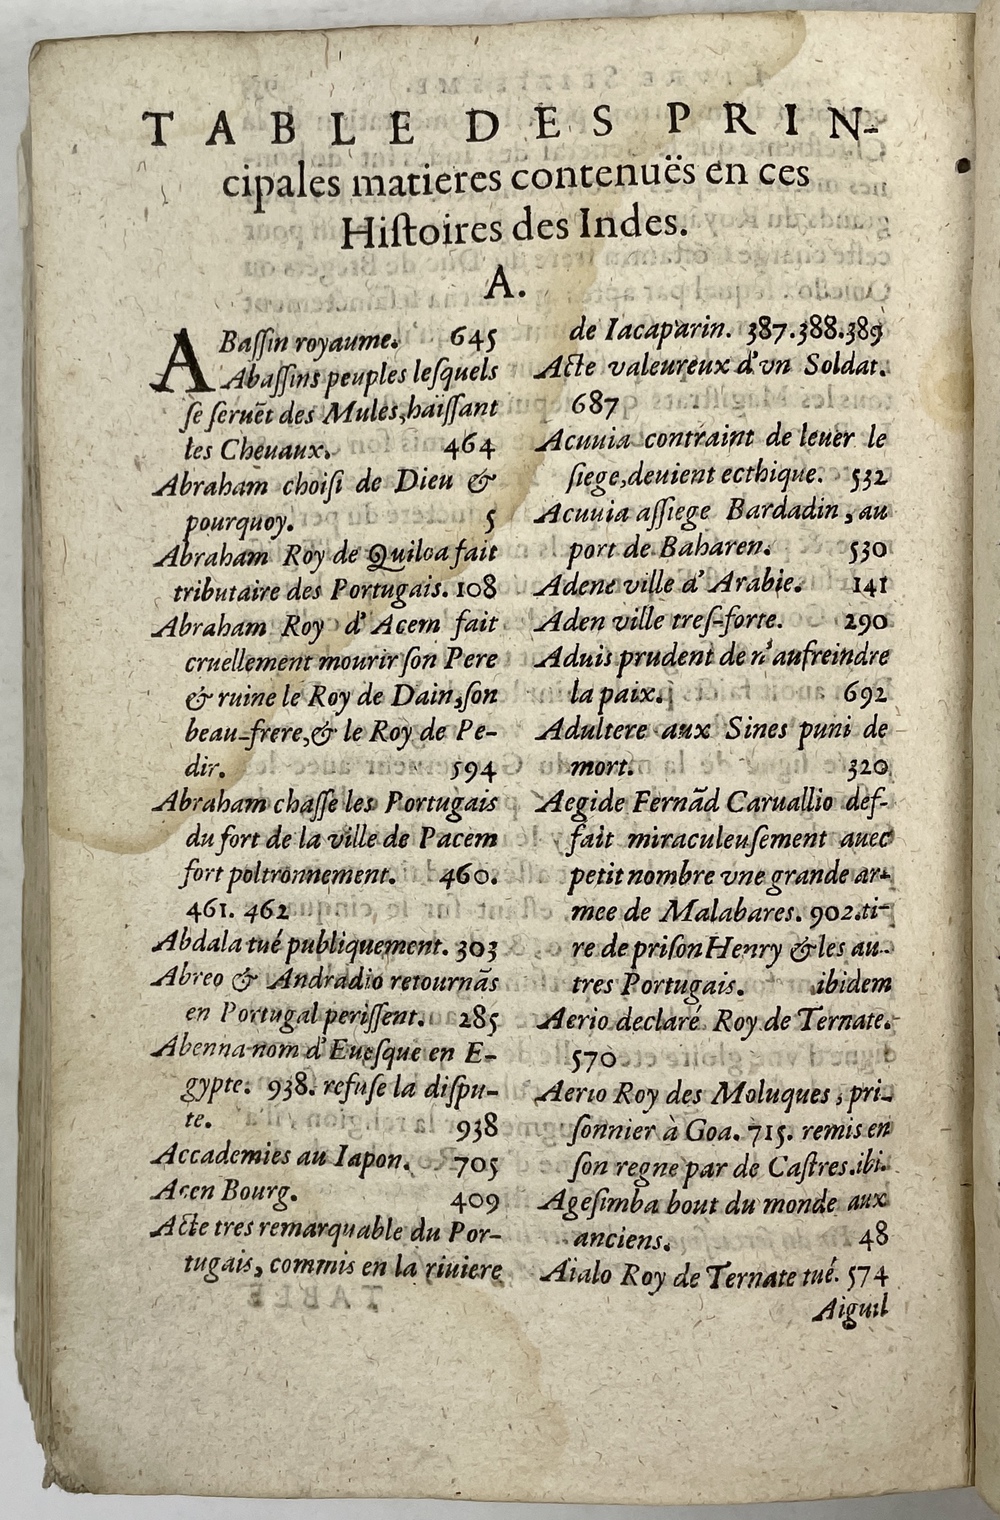 TABLE DES PRIN-
cipales matieres contenuës en ces
Hiſtoires des Indes.
A.
ABaſſin royaume. 645
Abaſſins peuples leſquels
ſe ſeruēt des Mules, haiſſant
les Cheuaux. 464
Abraham choiſi de Dieu &
pourquoy. 5
Abraham Roy de Quiloa fait
tributaire des Portugais. 108
Abraham Roy d'Acem fait
cruellement mourir ſon Pere
& ruine le Roy de Dain, ſon
beau-frere, & le Roy de Pe-
dir. 594
Abraham chaſſe les Portugais
du fort de la ville de Pacem
fort poltronnement. 460.
461. 462
Abdala tué publiquement. 303
Abreo & Andradio retournãs
en Portugal periſſent. 285
Abenna nom d'Eueſque en E-
gypte. 938. refuſe la diſpu-
te. 938
Accademies au Iapon. 705
Acen Bourg. 409
Acte tres remarquable du Por-
tugais, commis en la riuiere
de Iacaparin. 387.388.389
Acte valeureux d'vn Soldat.
687
Acuuia contraint de leuer le
ſiege, deuient ecthique. 532
Acuuia aſſiege Bardadin, au
port de Baharen. 530
Adene ville d'Arabie. 141
Aden ville treſ-forte. 290
Aduis prudent de n'aufreindre
la paix. 692
Adultere aux Sines puni de
mort. 320
Aegide Fernãd Caruallio def-
fait miraculeuſement auec
petit nombre vne grande ar-
mee de Malabares. 902. ti-
re de priſon Henry & les au-
tres Portugais. ibidem
Aerio declaré Roy de Ternate.
570
Aerio Roy des Moluques, pri-
ſonnier à Goa. 715. remis en
ſon regne par de Caſtres. ibi.
Ageſimba bout du monde aux
anciens. 48
Aïalo Roy de Ternate tué. 574
Aiguil